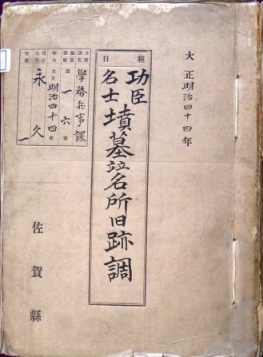 大正明治四十四年
種目
功臣
名士
墳墓並名所旧跡調
學務兵事課
第一六號
明治四十四年
永久
佐賀縣